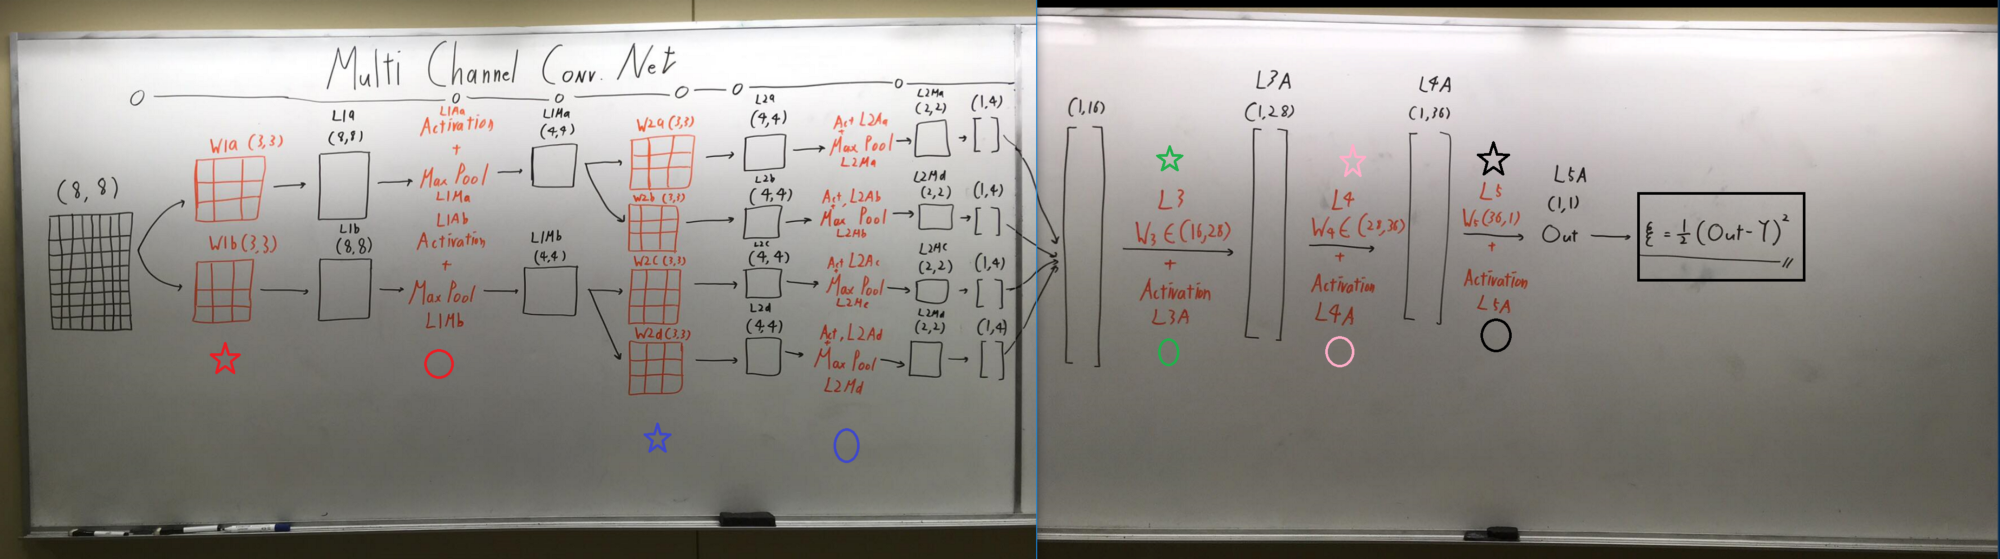 Multi Channel Conv. Net
(8, 8)
W1a (3,3)
W1b (3,3)
L1a
(8,8)
L1b
(8,8)
L1Aa
Activation
+
Max Pool
L1Ma
L1Ab
Activation
+
Max Pool
L1Mb
L1Ma
(4,4)
L1Mb
(4,4)
W2a (3,3)
W2b (3,3)
W2c (3,3)
W2d (3,3)
L2a
(4,4)
L2b
(4,4)
L2c
(4,4)
L2d
(4,4)
Act, L2Aa
+
Max Pool
L2Ma
Act, L2Ab
+
Max Pool
L2Mb
Act, L2Ac
+
Max Pool
L2Mc
Act, L2Ad
+
Max Pool
L2Md
L2Ma
(2,2)
L2Md
(2,2)
L2Mc
(2,2)
L2Md
(2,2)
(1,4)
(1,4)
(1,4)
(1,4)
(1,16)
L3
W3 ∈ (16,28)
+
Activation
L3A
L3A
(1,28)
L4
W4 ∈ (28,36)
+
Activation
L4A
L4A
(1,36)
L5
W5 (36,1)
+
Activation
L5A
L5A
(1,1)
Out
ξ = 1/2 (Out-Y)²